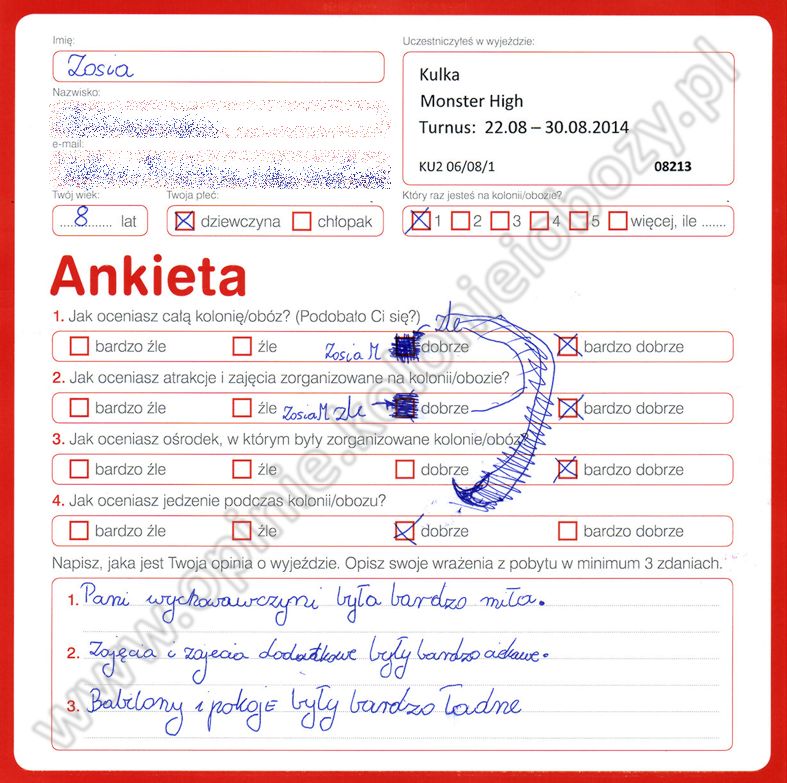 Imię:
Zosia
Nazwisko:
e-mail:
Twój wiek:
8 lat
Twoja płeć:
dziewczyna chłopak
Uczestniczyłeś w wyjeździe:
Kulka
Monster High
Turnus: 22.08 – 30.08.2014
KU2 06/08/1 08213
Który raz jesteś na kolonii/obozie?
1 2 3 4 5 więcej, ile .......
Ankieta
1. Jak oceniasz całą kolonię/obóz? (Podobało Ci się?) źle
bardzo źle źle Zosia M dobrze bardzo dobrze
2. Jak oceniasz atrakcje i zajęcia zorganizowane na kolonii/obozie?
bardzo źle źle Zosia M źle dobrze bardzo dobrze
3. Jak oceniasz ośrodek, w którym były zorganizowane kolonie/obóz?
bardzo źle źle dobrze bardzo dobrze
4. Jak oceniasz jedzenie podczas kolonii/obozu?
bardzo źle źle dobrze bardzo dobrze
Napisz, jaka jest Twoja opinia o wyjeździe. Opisz swoje wrażenia z pobytu w minimum 3 zdaniach.
1. Pani wychowawczyni była bardzo miła.
2. Zajęcia i zajecia dodatkowe były bardzo ciekawe.
3. Babilony i pokoje były bardzo ładne
www.opinie.kolonieiobozy.pl